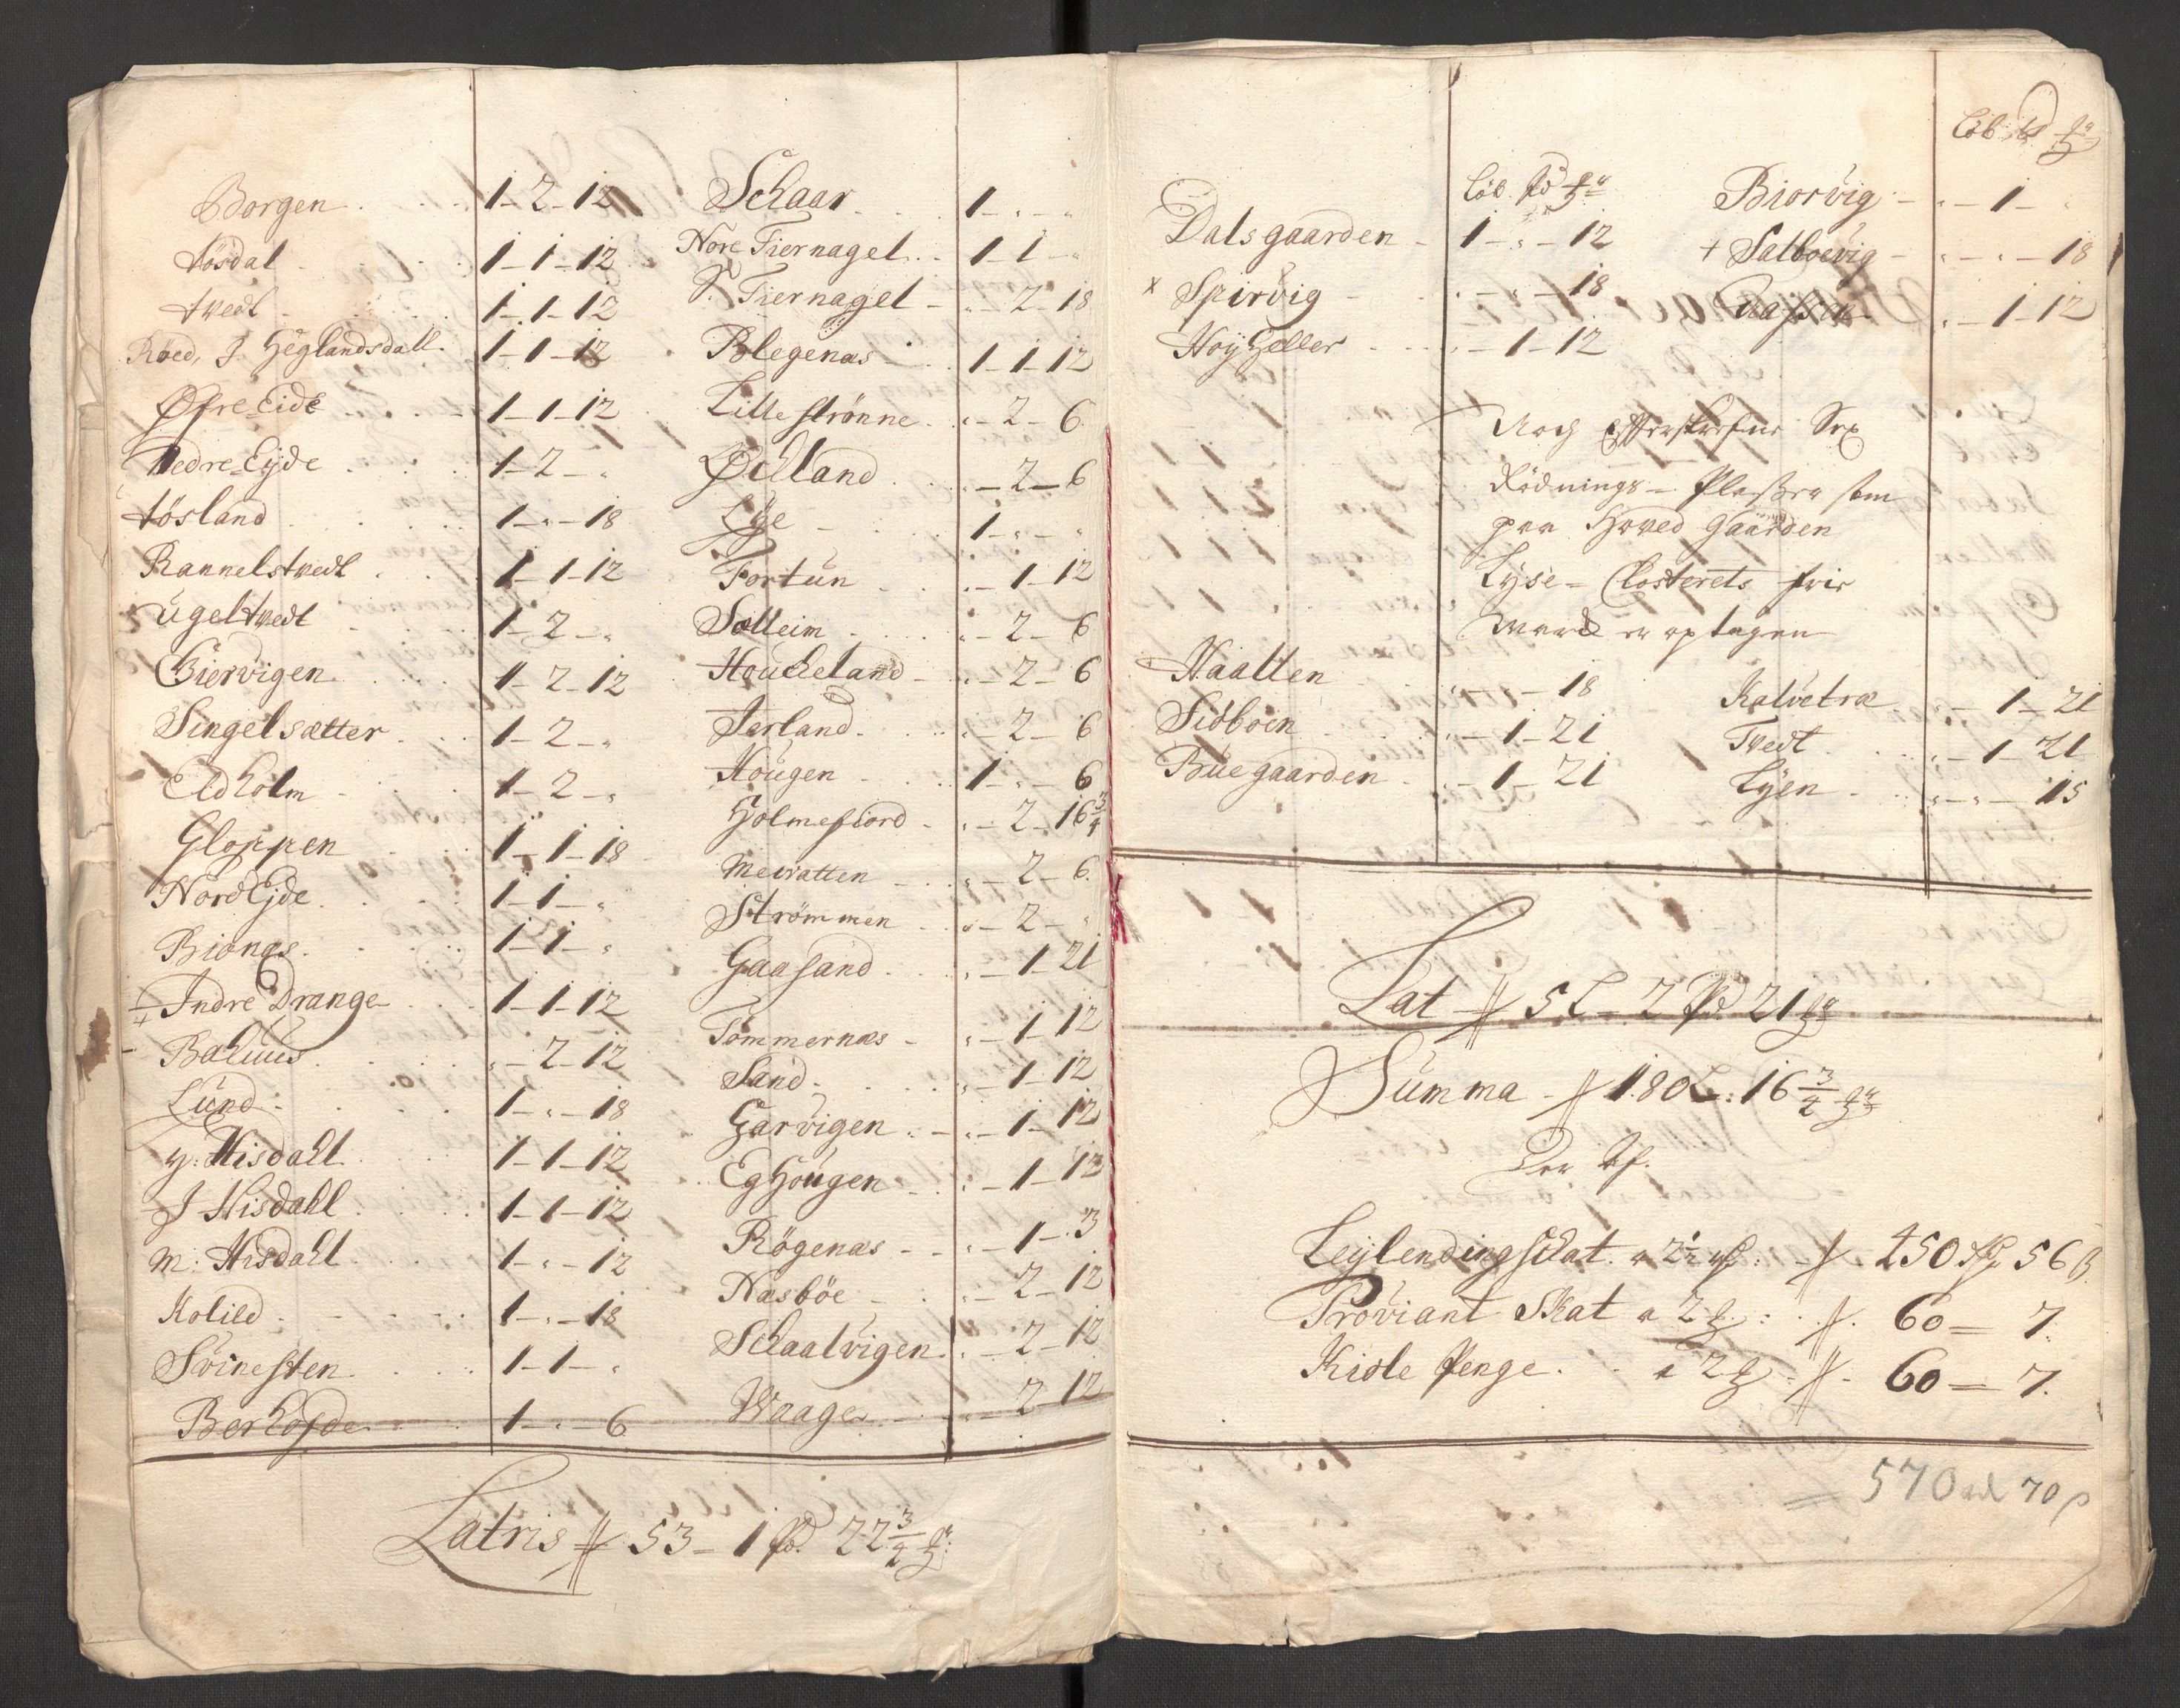 Borgen 1-2-12
Tösdal 1-1-12
tvedt 1-1-12
Röed, J. Heglandsdall 1-1-12
Øfre Eide 1-1-12
Nedre Eÿde 1-2-„
tösland 1-„-18
Rannelstvedt 1-1-12
Ugeltvedt 1-2-„
Giervigen 1-2-12
Singelsætter 1-2-„
Eldholm 1-2-„
Gloppen 1-1-18
Nord Eÿde 1-1-„
Bionæs 1-1-„
Indre Drange 1-1-12
Balhuus „-2-12
Lund 1-„-18
y: Hisdahl 1-1-12
J Hisdahl 1-1-12
M: Hisdahl 1-„-12
Kolild 1-„-18
Svinesten 1-1-„
Berhofde 1-„-6
Schaar 1-„-„
Nore Tiernagel 1-1-„
S. Tiernagel „-2-18
Blegenæs 1-1-12
Lille strönne „-2-6
Øcland „-2-6
Lÿe 1-„-„
Fortun „-1-12
Solleim „-2-6
Houcheland „-2-6
Jarland „-2-6
Hougen 1-„-6
Holmefiord „-2-16 3/4
Mevatten „-2-6
Strömmen „-2-„
Gaasand „-1-21
Tömmernæs „-1-12
Sand „-1-12
Garvigen „-1-12
Eg Hougen „-1-12
Rögenæs „-1-3
Næsböe „-2-12
Schaalvigen „-2-12
Waage „-2-12
Latris 53-1 Pd. 22 3/4
Löb Pd
Dalsgaarden 1-„-12
x Spirvig „-„-18
Höÿ Heller „-1-12
Löb Pd
Biorvig „-1-„
+ Salboevig „-„-18
„-1-12
Noch Efterskrefne Sex
Rödnings-Pladser som
paa Hoved Gaarden
Lÿse-Closterets frie
Mark er optagen
Haatten „-„-18
Sidboen „-1-21
Buegaarden „-1-21
Kalvetræ „-1-21
Tvedt „-1-21
Lÿen „-„-15
Lat 5 L-2 Pd 21
Summa 180 L: 16 3/4
Der Af.
Leÿlending Schat a 2 1/2 450 56 ß
Proviant Skat a 2 60-7.
Kiole Penge. a 2 60-7.
570 rd 70